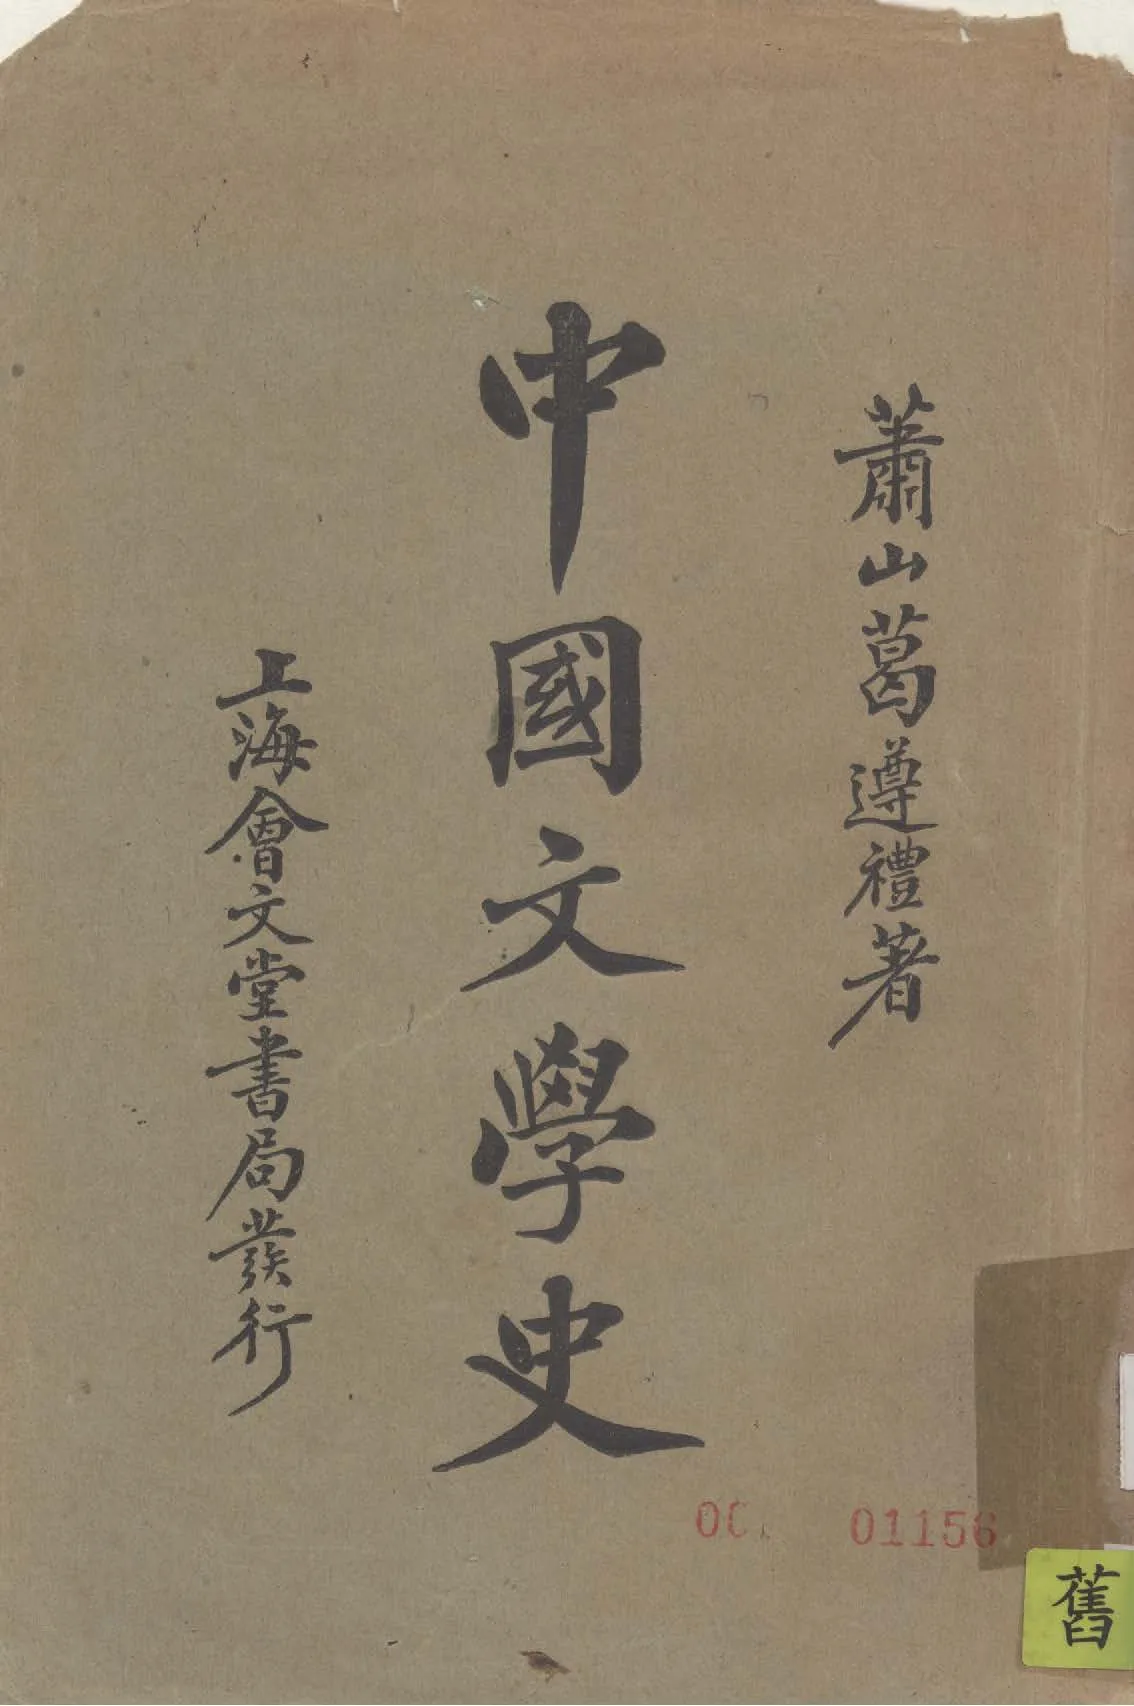 蕭山葛遵禮著
中國文學史
上海會文堂書局發行
01156
舊